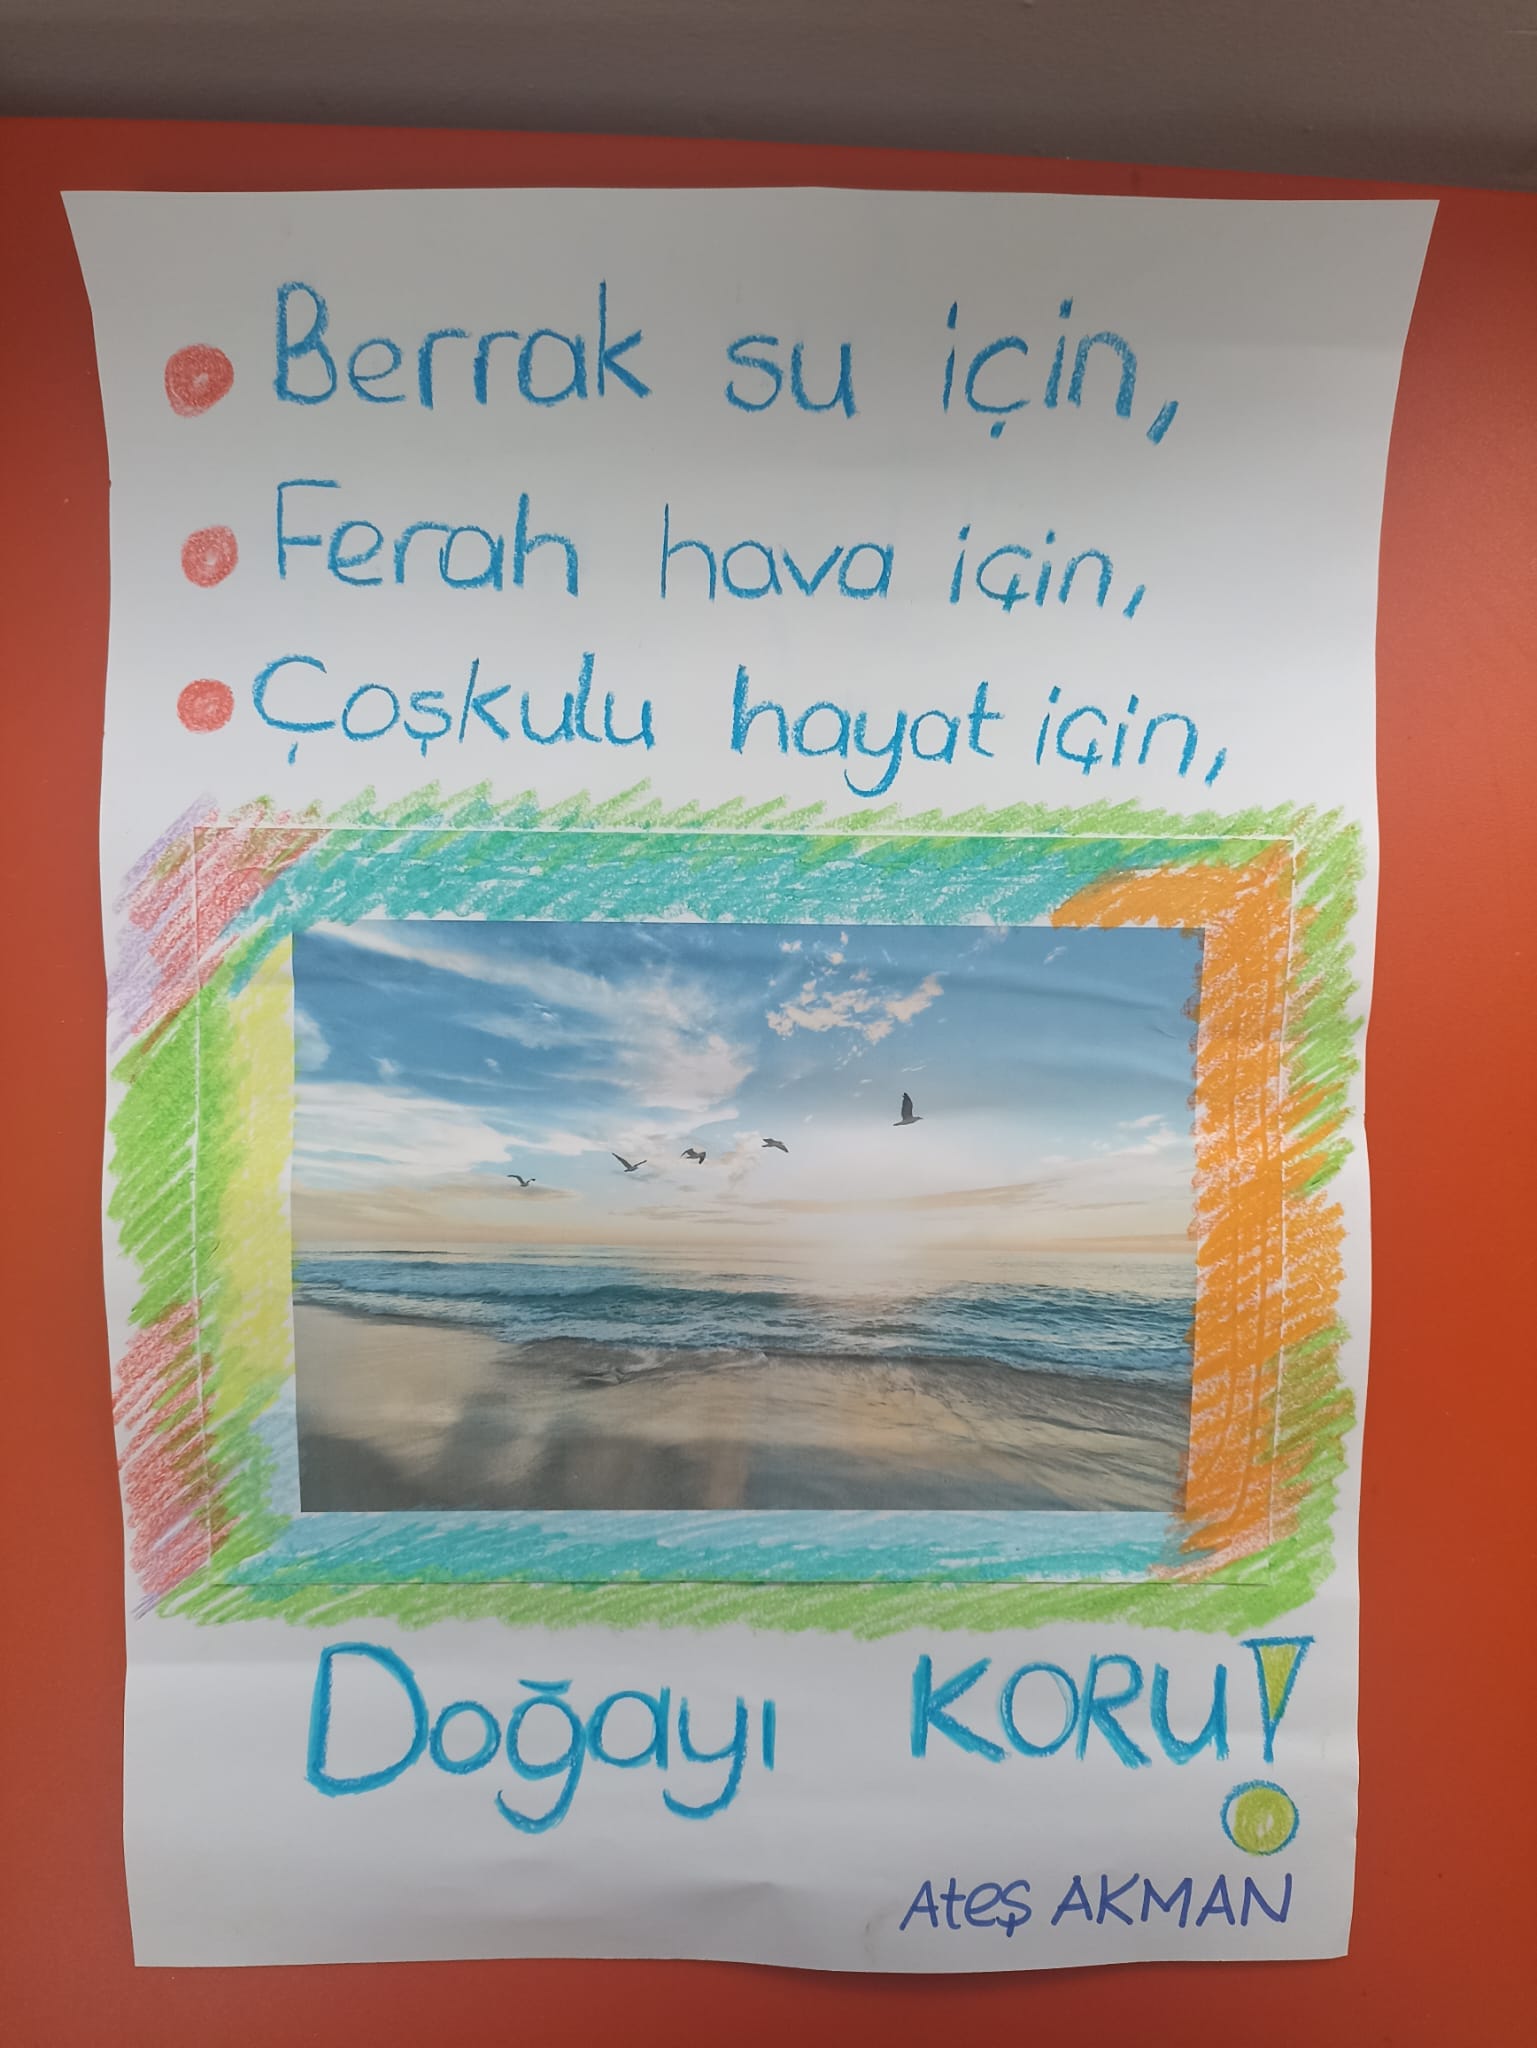 Berrak su için,
Ferah hava için,
Çoşkulu hayat için,
Doğayı KORU!
Ateş AKMAN